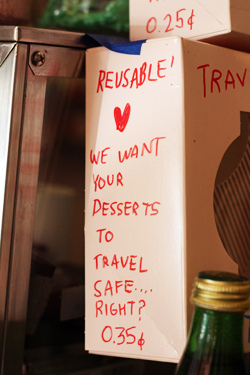 0.25¢
REUSABLE!
TRAV
WE WANT
YOUR
DESSERTS
TO
TRAVEL
SAFE....
RIGHT?
0.35¢